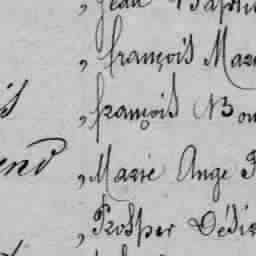 , Jean Bapti
, françois Mar
, françois Bon
, Marie Ange
, Prosper Dési